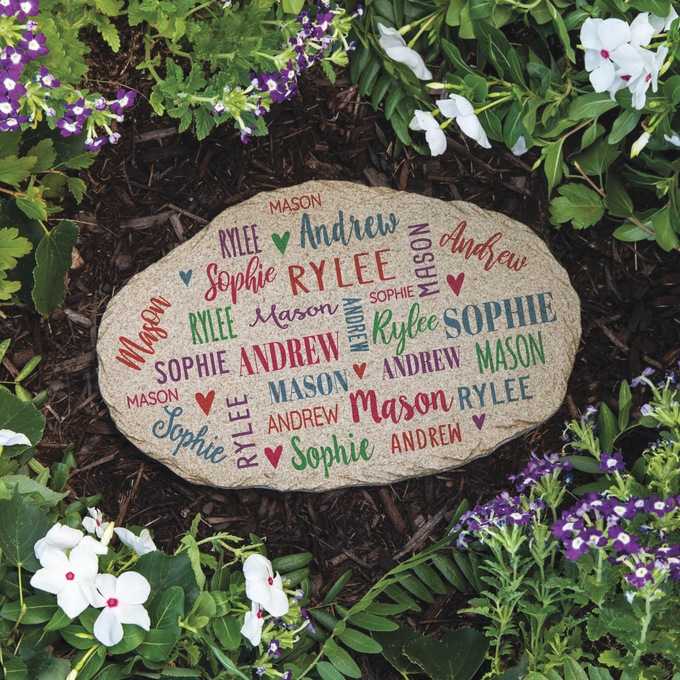 MASON
RYLEE Andrew MASON Andrew
Sophie RYLEE
Mason RYLEE Mason ANDREW SOPHIE Rylee SOPHIE
SOPHIE ANDREW ANDREW MASON
MASON MASON Mason RYLEE
Sophie RYLEE ANDREW
Sophie ANDREW